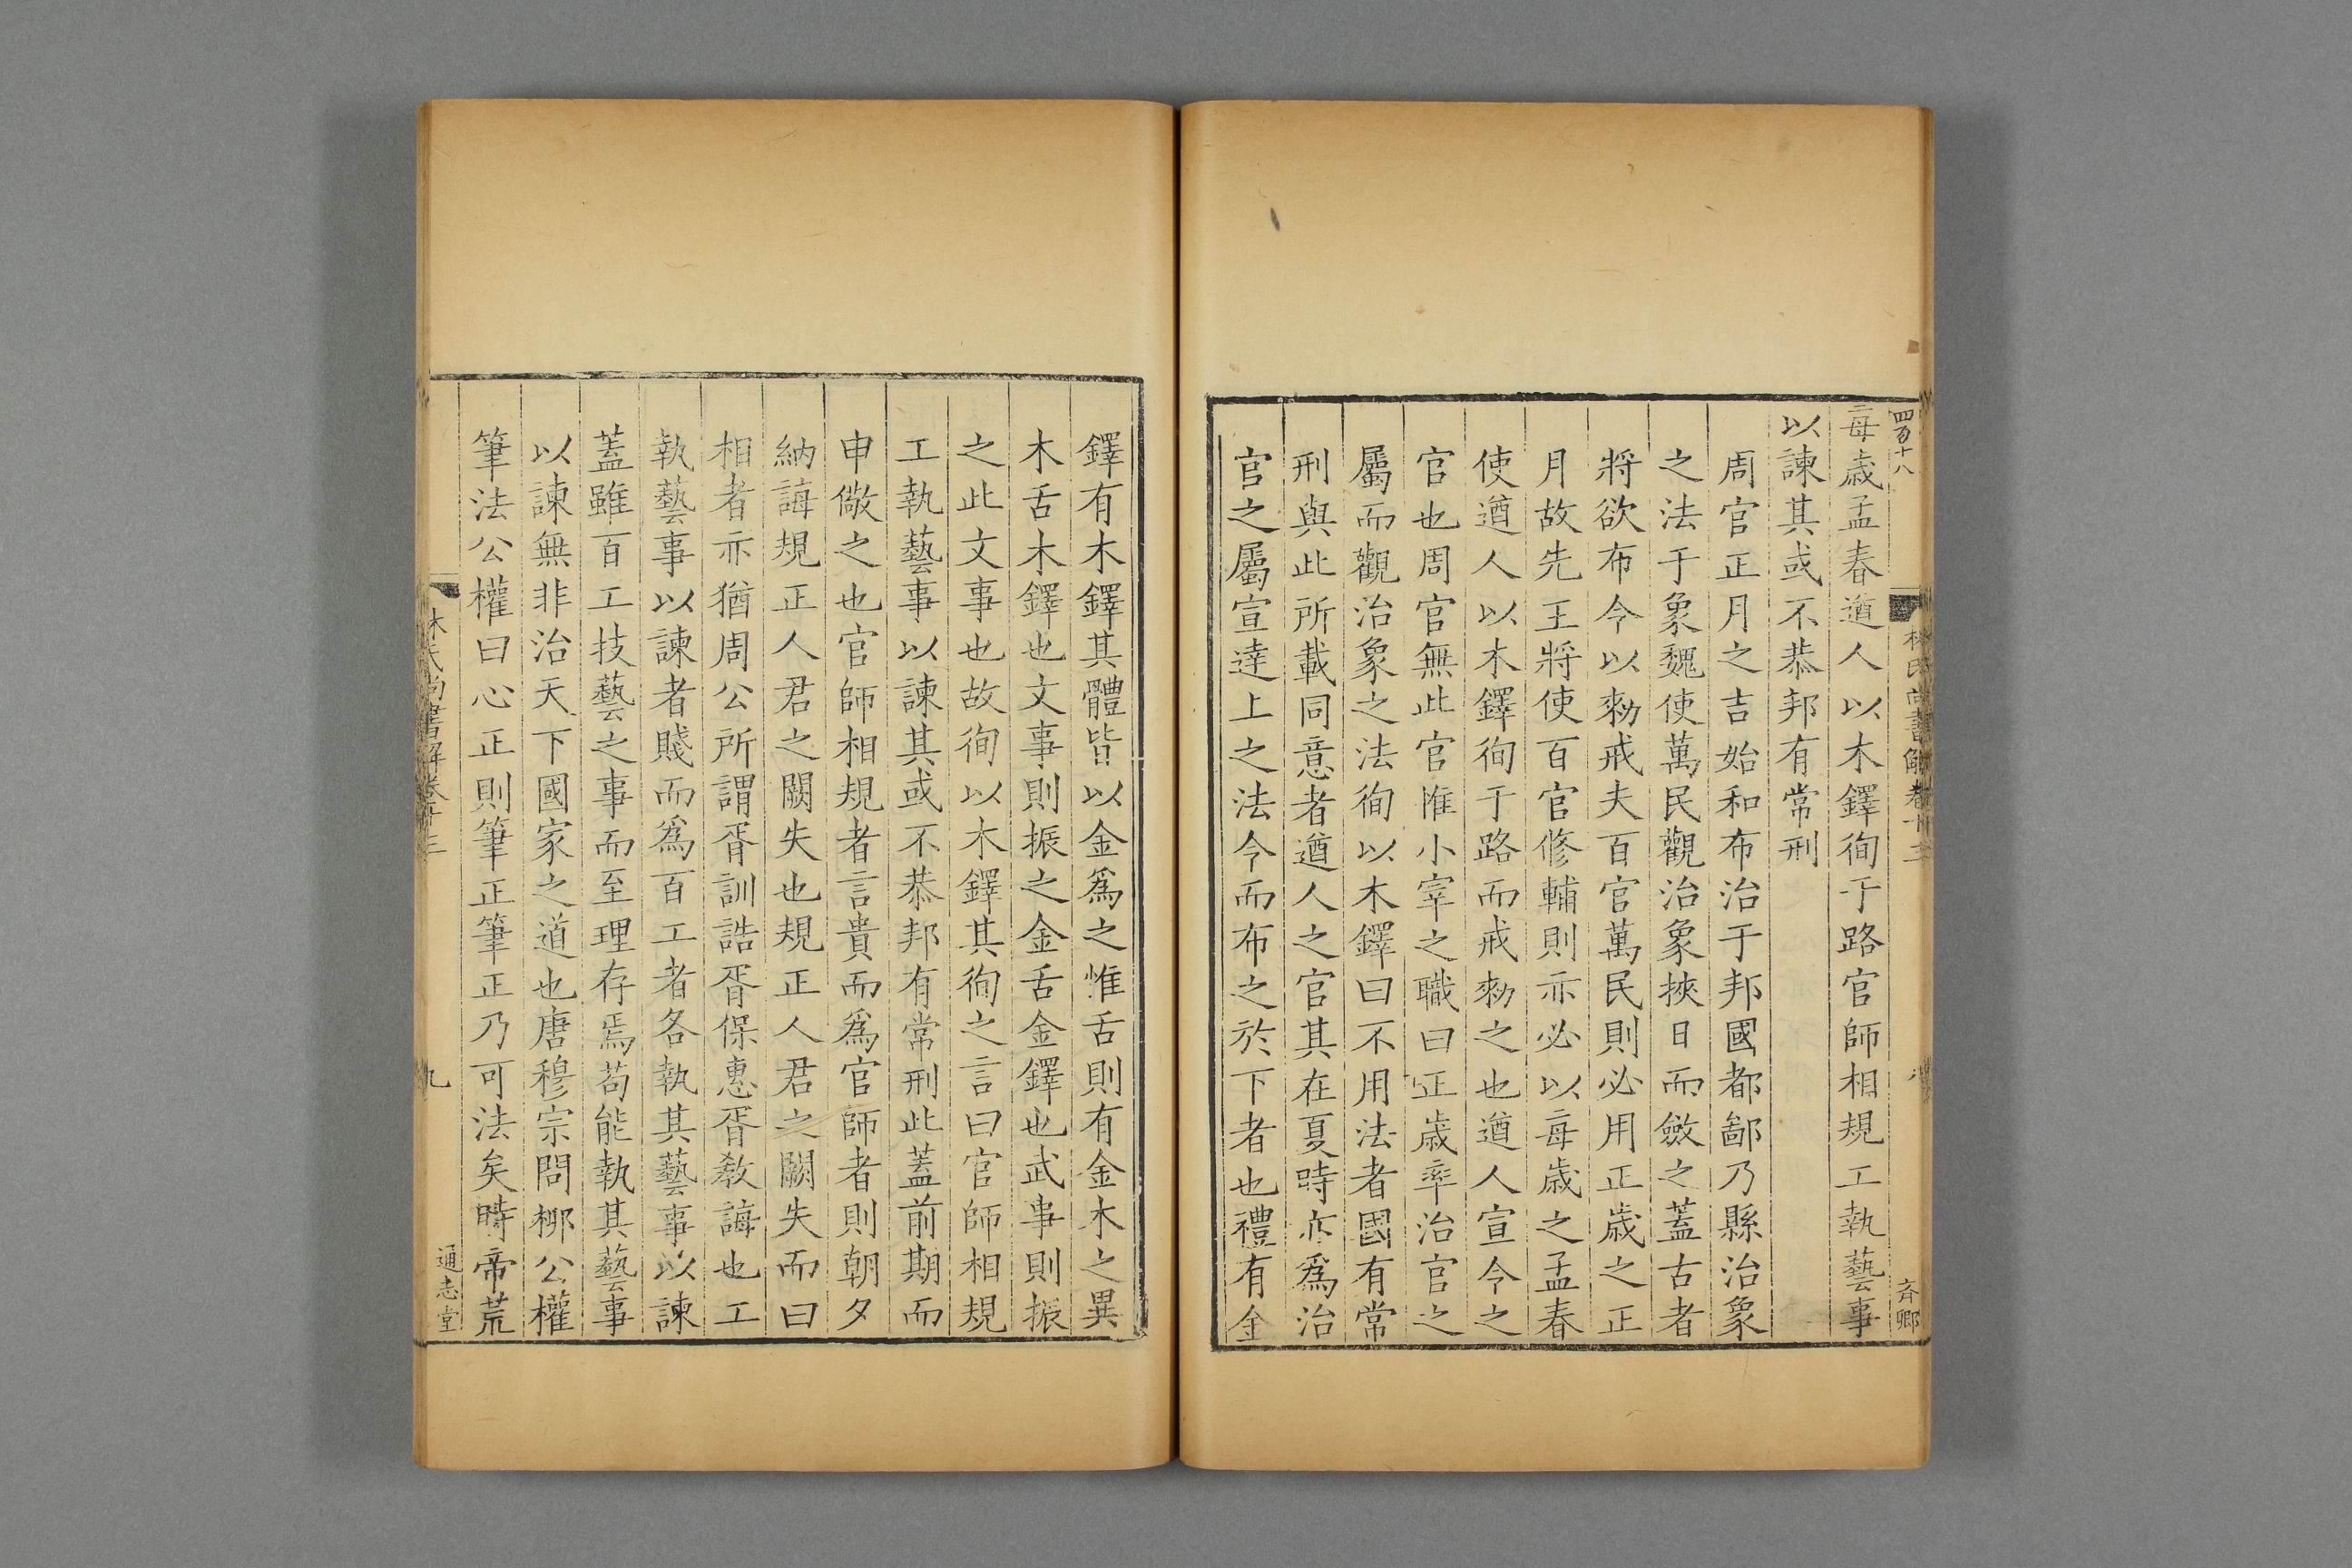 四百十八
林氏尚書解卷十三
八
斉卿
每歲孟春遒人以木鐸徇于路官師相規工執藝事
以諫其或不恭邦有常刑
周官正月之吉始和布治于邦國都鄙乃縣治象
之法于象魏使萬民觀治象挾日而斂之蓋古者
將欲布令以勑戒夫百官萬民則必用正歲之正
月故先王將使百官修輔則亦必以每歲之孟春
使遒人以木鐸徇于路而戒勑之也遒人宣令之
官也周官無此官惟小宰之職曰正歲率治官之
屬而觀治象之法徇以木鐸曰不用法者國有常
刑與此所載同意者遒人之官其在夏時亦為治
官之屬宣達上之法令而布之於下者也禮有金
鐸有木鐸其體皆以金爲之惟舌則有金木之異
木舌木鐸也文事則振之金舌金鐸也武事則振
之此文事也故徇以木鐸其徇之言曰官師相規
工執藝事以諫其或不恭邦有常刑此蓋前期而
申儆之也官師相規者言貴而爲官師者則朝夕
納誨規正人君之闕失也規正人君之闕失而曰
相者亦猶周公所謂胥訓誥胥保惠胥敎誨也工
執藝事以諫者賤而爲百工者各執其藝事以諫
蓋雖百工技藝之事而至理存焉苟能執其藝事
以諫無非治天下國家之道也唐穆宗問桺公權
筆法公權曰心正則筆正筆正乃可法矣時帝荒
林氏尚書解卷十三
九
通志堂